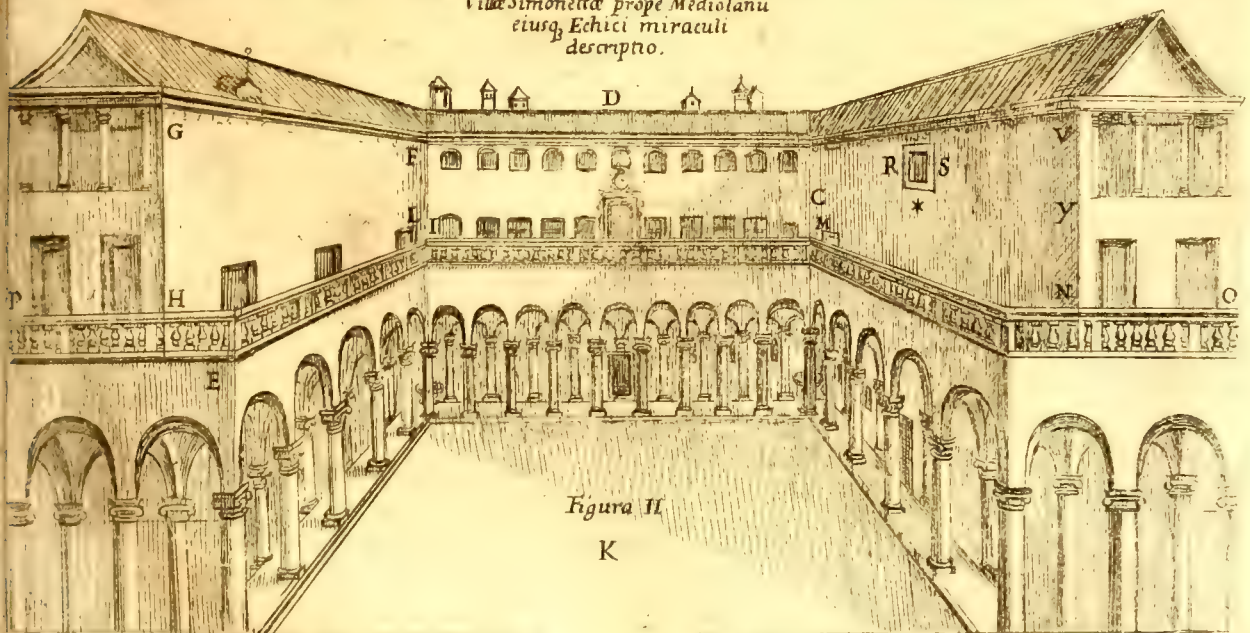 Villæ Simonettæ prope Mediolanū
eiusq₃ Echici miraculi
descriptio.
D
G
F
V
R S
*
C
Y
L I
M
P
H
N
O
E
Figura II
K